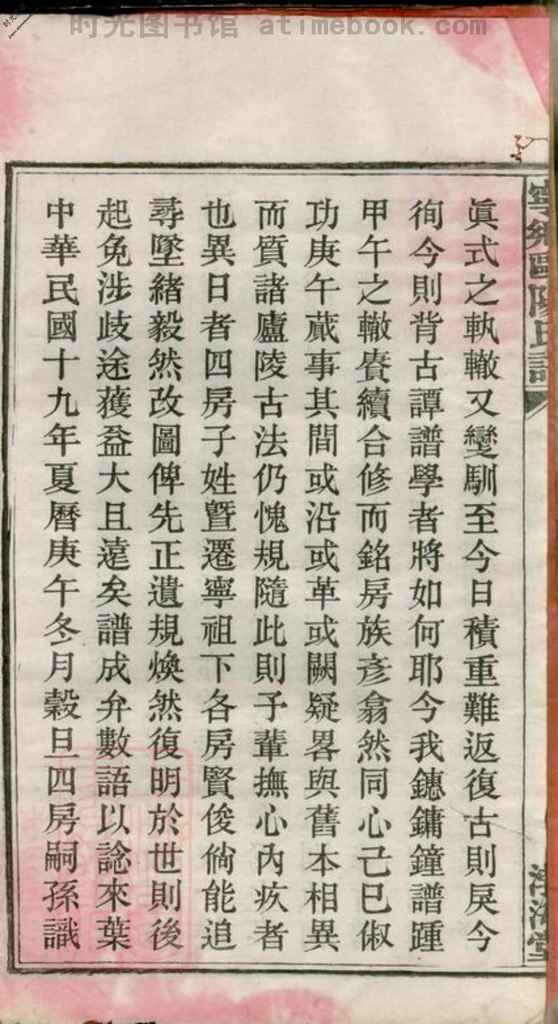 时光图书馆 atimebook.com
寧鄉歐陽氏譜
眞式之執轍又變馴至今日積重難返復古則戾今
徇今則背古譚譜學者將如何耶今我鏸鏞鐘譜踵
甲午之轍賡續合修而銘房族彥翕然同心己巳俶
功庚午蕆事其間或沿或革或闕疑畧與舊本相異
而質諸廬陵古法仍愧規隨此則予輩撫心內疚者
也異日者四房子姓暨遷寧祖下各房賢俊倘能追
尋墜緒毅然改圖俾先正遺規煥然復明於世則後
起免涉歧途獲益大且遠矣譜成弁數語以諗來葉
中華民國十九年夏曆庚午冬月穀旦四房嗣孫識
海堂